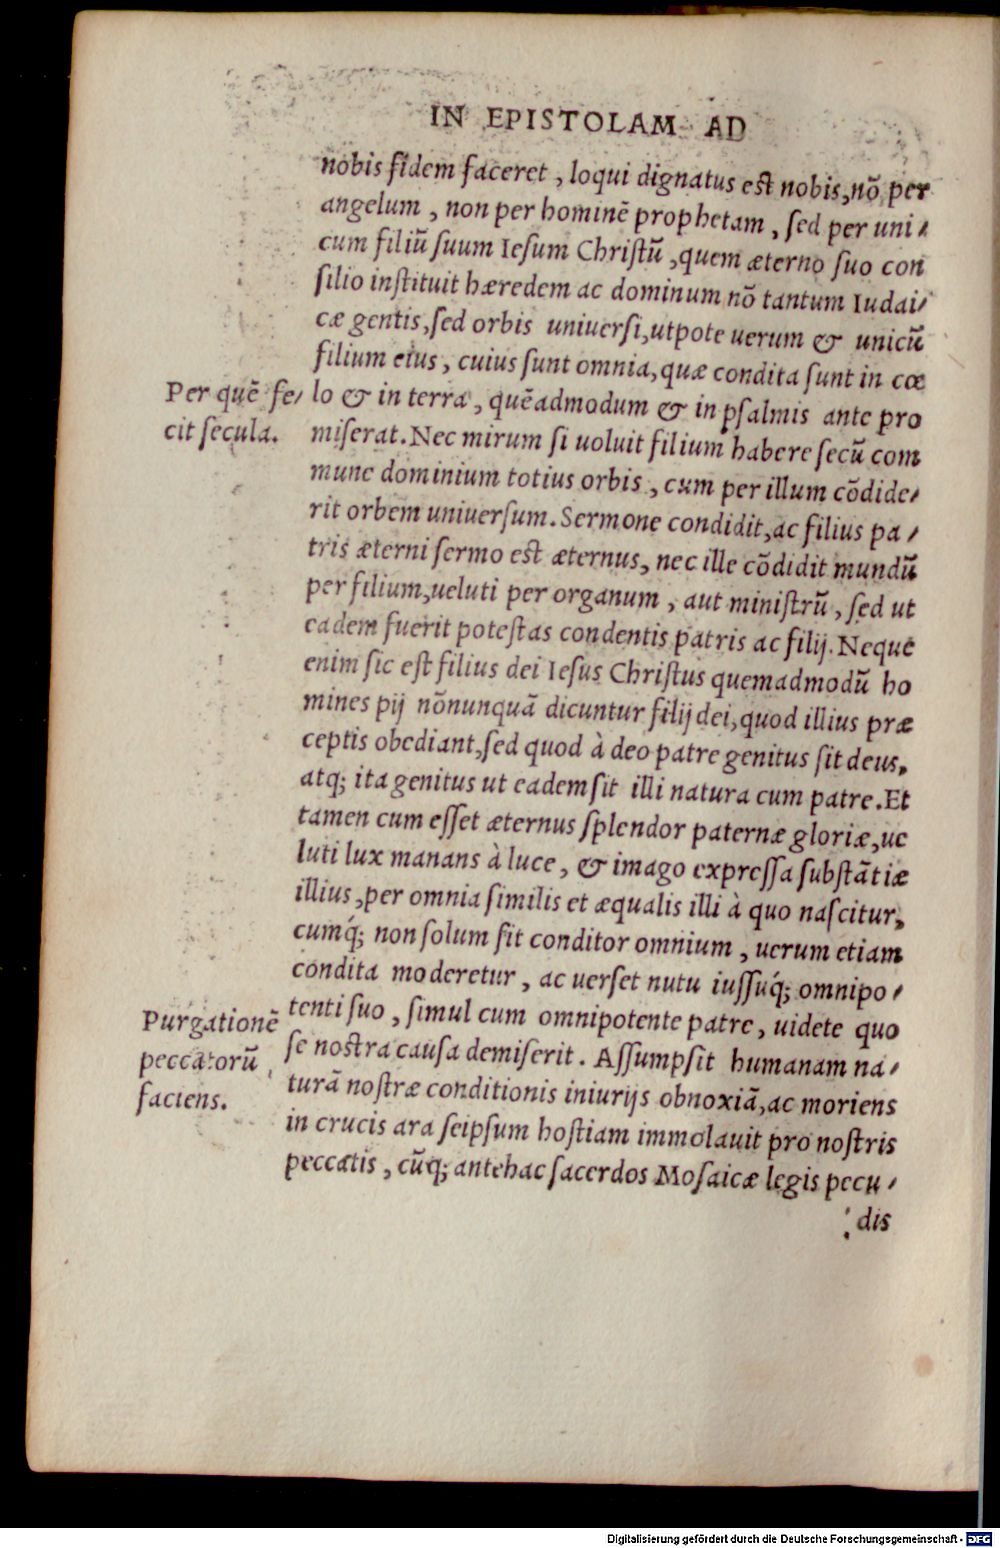 IN EPISTOLAM AD
nobis fidem faceret, loqui dignatus est nobis, nõ per
angelum, non per hominẽ prophetam, ſed per uni⸗
cum filiũ ſuum Ieſum Chriſtũ, quem æterno ſuo con
ſilio inſtituit hæredem ac dominum nõ tantum Iudai⸗
cæ gentis, ſed orbis uniuerſi, utpote uerum & unicũ
filium eius, cuius ſunt omnia, quæ condita ſunt in cœ
Per quẽ fe⸗
cit ſecula.
lo & in terra, quẽadmodum & in pſalmis ante pro
miſerat. Nec mirum ſi uoluit filium habere ſecũ com
mune dominium totius orbis, cum per illum cõdide⸗
rit orbem uniuerſum. Sermone condidit, ac filius pa⸗
tris æterni ſermo eſt æternus, nec ille cõdidit mundũ
per filium, ueluti per organum, aut miniſtrũ, ſed ut
eadem fuerit poteſtas condentis patris ac filij. Neque
enim ſic eſt filius dei Ieſus Chriſtus quemadmodũ ho
mines pij nõnunquã dicuntur filij dei, quod illius præ
ceptis obediant, ſed quod à deo patre genitus ſit deus,
atq; ita genitus ut eadem ſit illi natura cum patre. Et
tamen cum eſſet æternus ſplendor paternæ gloriæ, ue
luti lux manans à luce, & imago expreſſa ſubſtãtiæ
illius, per omnia ſimilis et æqualis illi à quo naſcitur,
cumq́; non ſolum ſit conditor omnium, uerum etiam
condita moderetur, ac uerſet nutu iuſſuq́; omnipo⸗
Purgationẽ
peccatorũ
faciens.
tenti ſuo, ſimul cum omnipotente patre, uidete quo
ſe noſtra cauſa demiſerit. Aſſumpſit humanam na⸗
turã noſtræ conditionis iniurijs obnoxiã, ac moriens
in crucis ara ſeipſum hoſtiam immolauit pro noſtris
peccatis, cũq; antehac ſacerdos Moſaicæ legis pecu⸗
dis
Digitalisierung gefördert durch die Deutsche Forschungsgemeinschaft - DFG